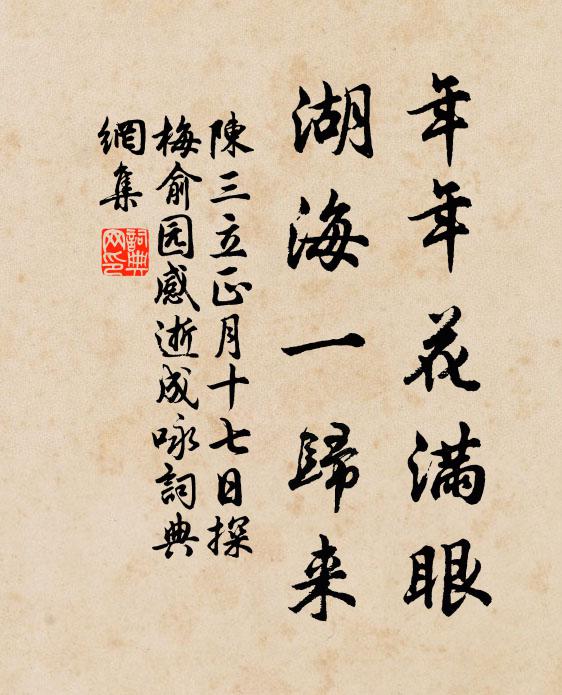 年年花满眼
湖海一歸来
陳三立正月十七日探
梅俞园感逝成咏詞典
網集
詞典
网印